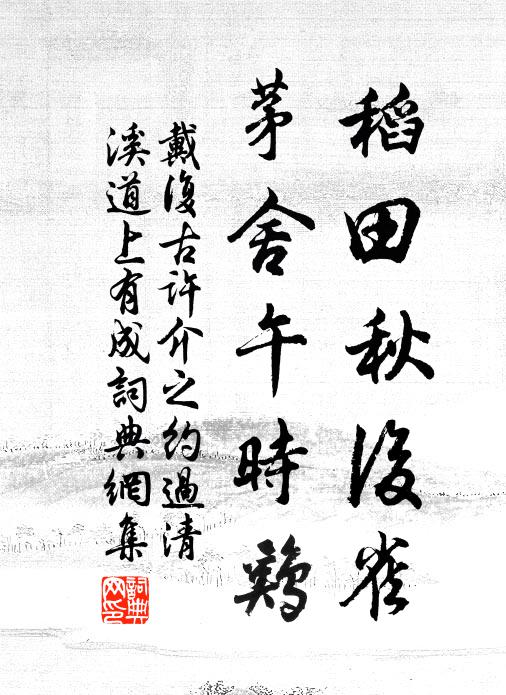 稻田秋後雀
茅舍午時鷄
戴復古許介之約過清
溪道上有成詞典網集
詞典網印